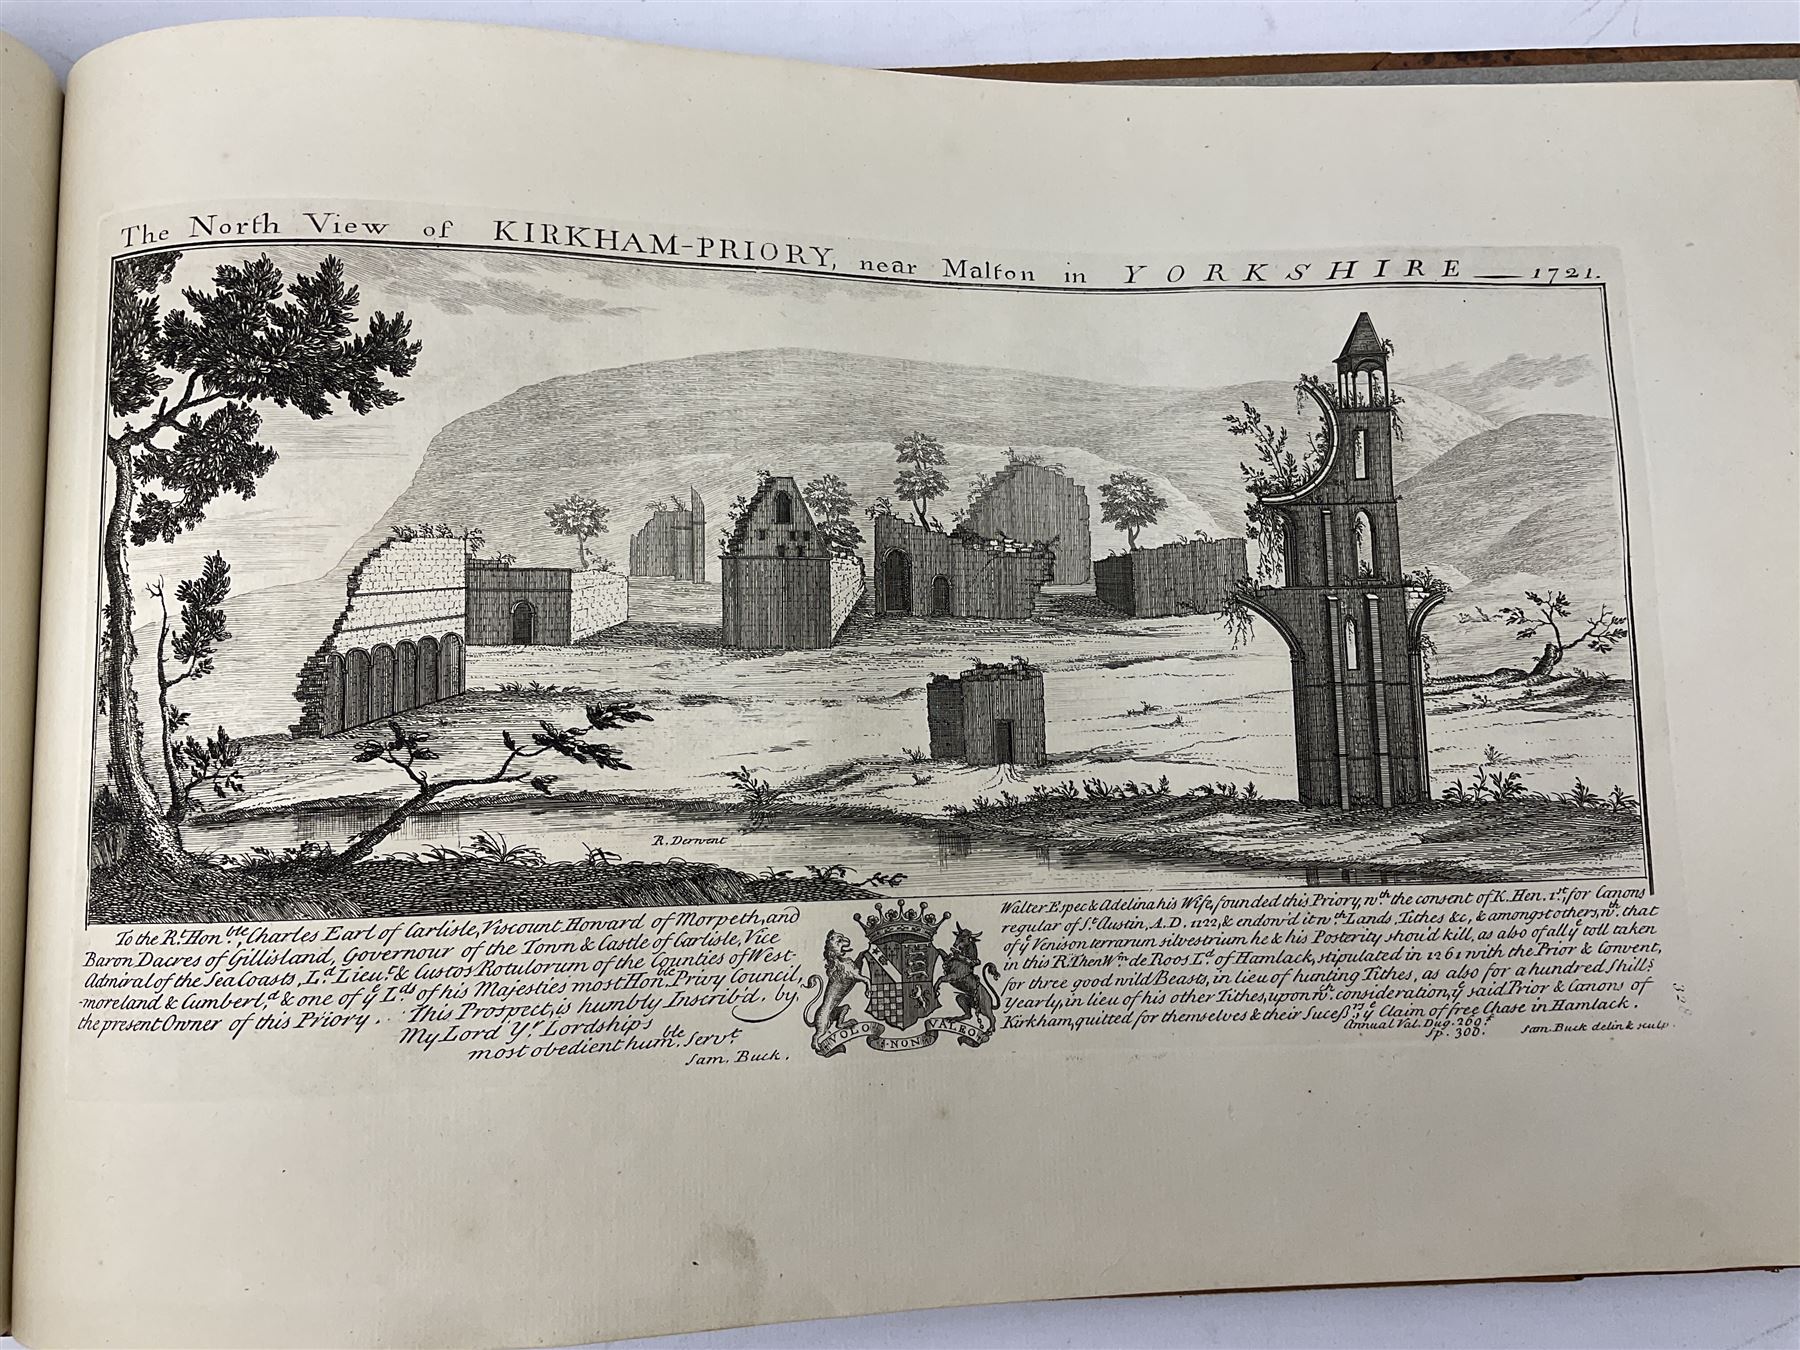 The North View of KIRKHAM-PRIORY, near Malton in YORKSHIRE — 1721.
R. Derwent
To the Rt. Honble, Charles Earl of Carlisle, Viscount Howard of Morpeth, and
Baron Dacres of Gillisland, Governour of the Town & Castle of Carlisle, Vice
Admiral of the Sea Coasts, Ld. Lieut. & Custos Rotulorum of the Counties of West-
-moreland & Cumberl.d & one of ye Lds of his Majesties most Honble. Privy Council,
the present Owner of this Priory. This Prospect, is humbly Inscrib'd. by,
My Lord Yr. Lordships
most obedient humble. Servt.
Sam. Buck.
VOLO NON VALEO
Walter Espec & Adelina his Wife, founded this Priory, wth. the consent of K. Hen. 1st, for Canons
regular of St. Austin, A.D. 1122, & endow'd it wth. Lands, Tithes &c, & amongst others, wth. that
of ye Venison terrarum silvestrium he & his Posterity shou'd kill, as also of all ye toll taken
in this R. Then Wm. de Roos Ld. of Hamlack, stipulated in 1261 with the Prior & Convent,
for three good wild Beasts, in lieu of hunting Tithes, as also for a hundred Shills.
Yearly, in lieu of his other Tithes, upon wch. consideration, ye said Prior & Canons of
Kirkham, quitted for themselves & their Sucessrs, ye Claim of free Chase in Hamlack.
Annual Val. Dug. 260£
Sp. 300.
Sam. Buck delin & sculp.